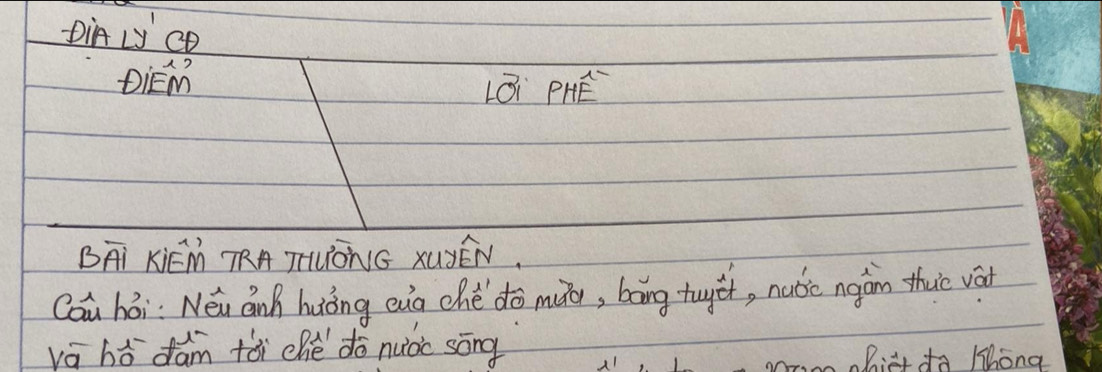 ĐỊA LÝ CĐ
À
ĐIỂM
LỜI PHÊ
BÀI KIỂM TRA THƯỜNG XUYÊN.
Câu hỏi: Nêu ảnh hưởng của chế độ mưa, băng tuyết, nước ngầm thực vật
và hồ đầm tới chế độ nước sông
nhiệt độ không